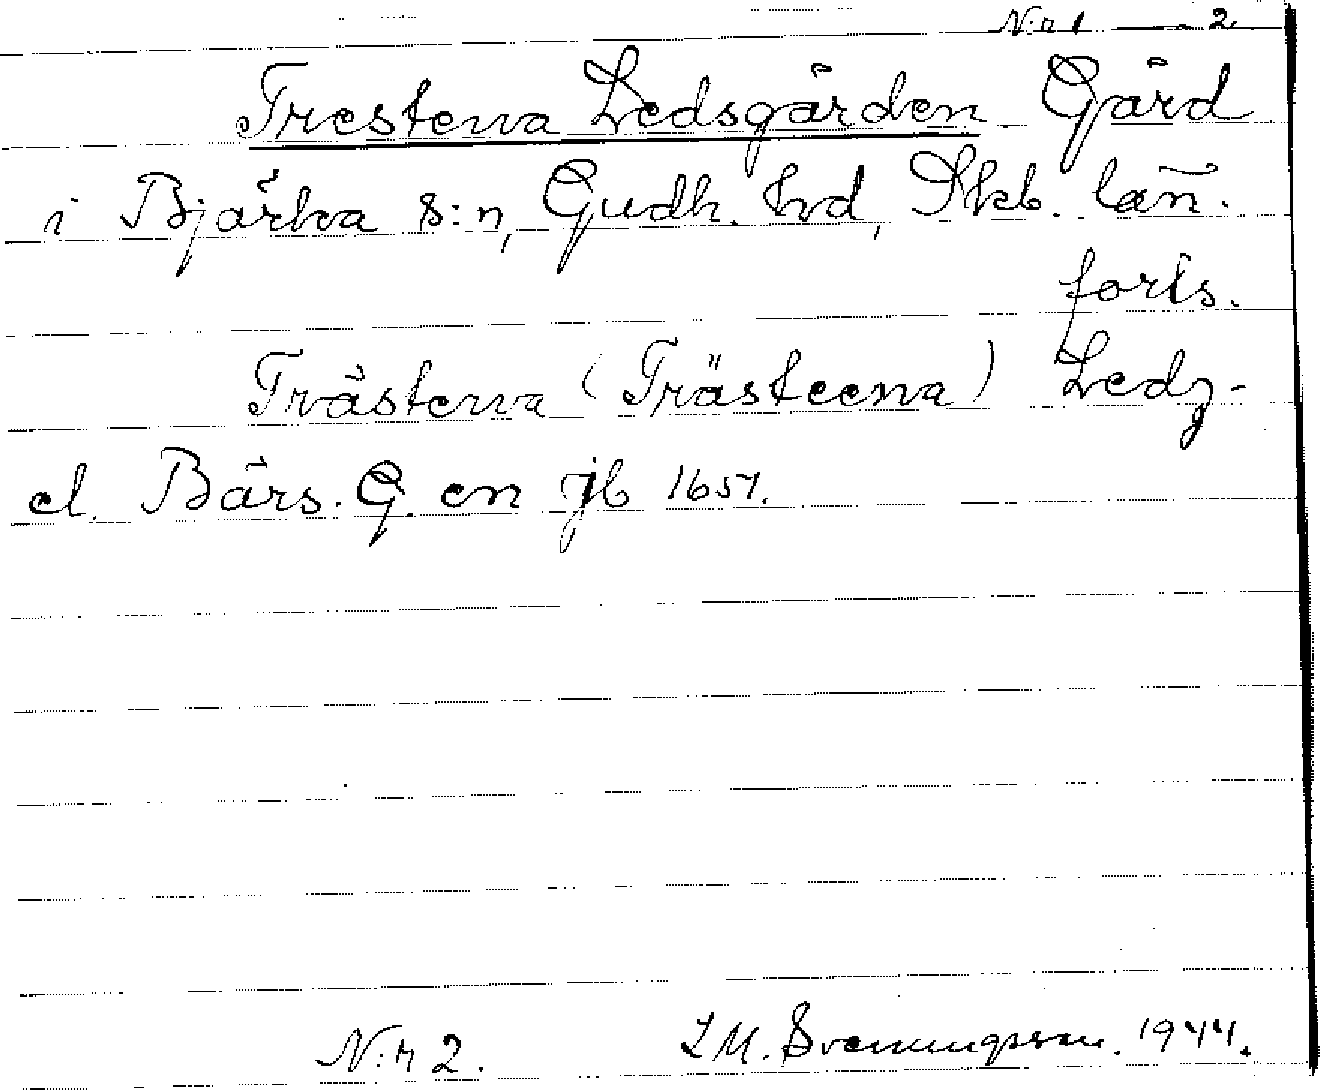 N:r 1 - 2
Trestena Ledsgården Gård
i Bjärka s:n, Gudh. hrd, Skb. län.
forts.
Trästena (Trästeena) Ledz-
el. Bärs. G. en jb 1651.
N:r 2. L M. Svenungsson. 1944.